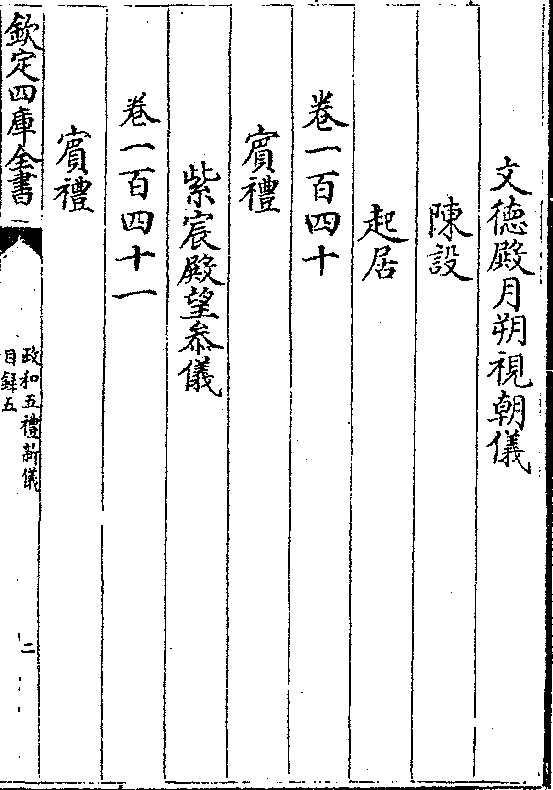 文德殿月朔視朝儀
陳設
起居
卷一百四十
賓禮
紫宸殿望叅儀
卷一百四十一
賓禮
欽定四庫全書
政和五禮新儀
目録五
二